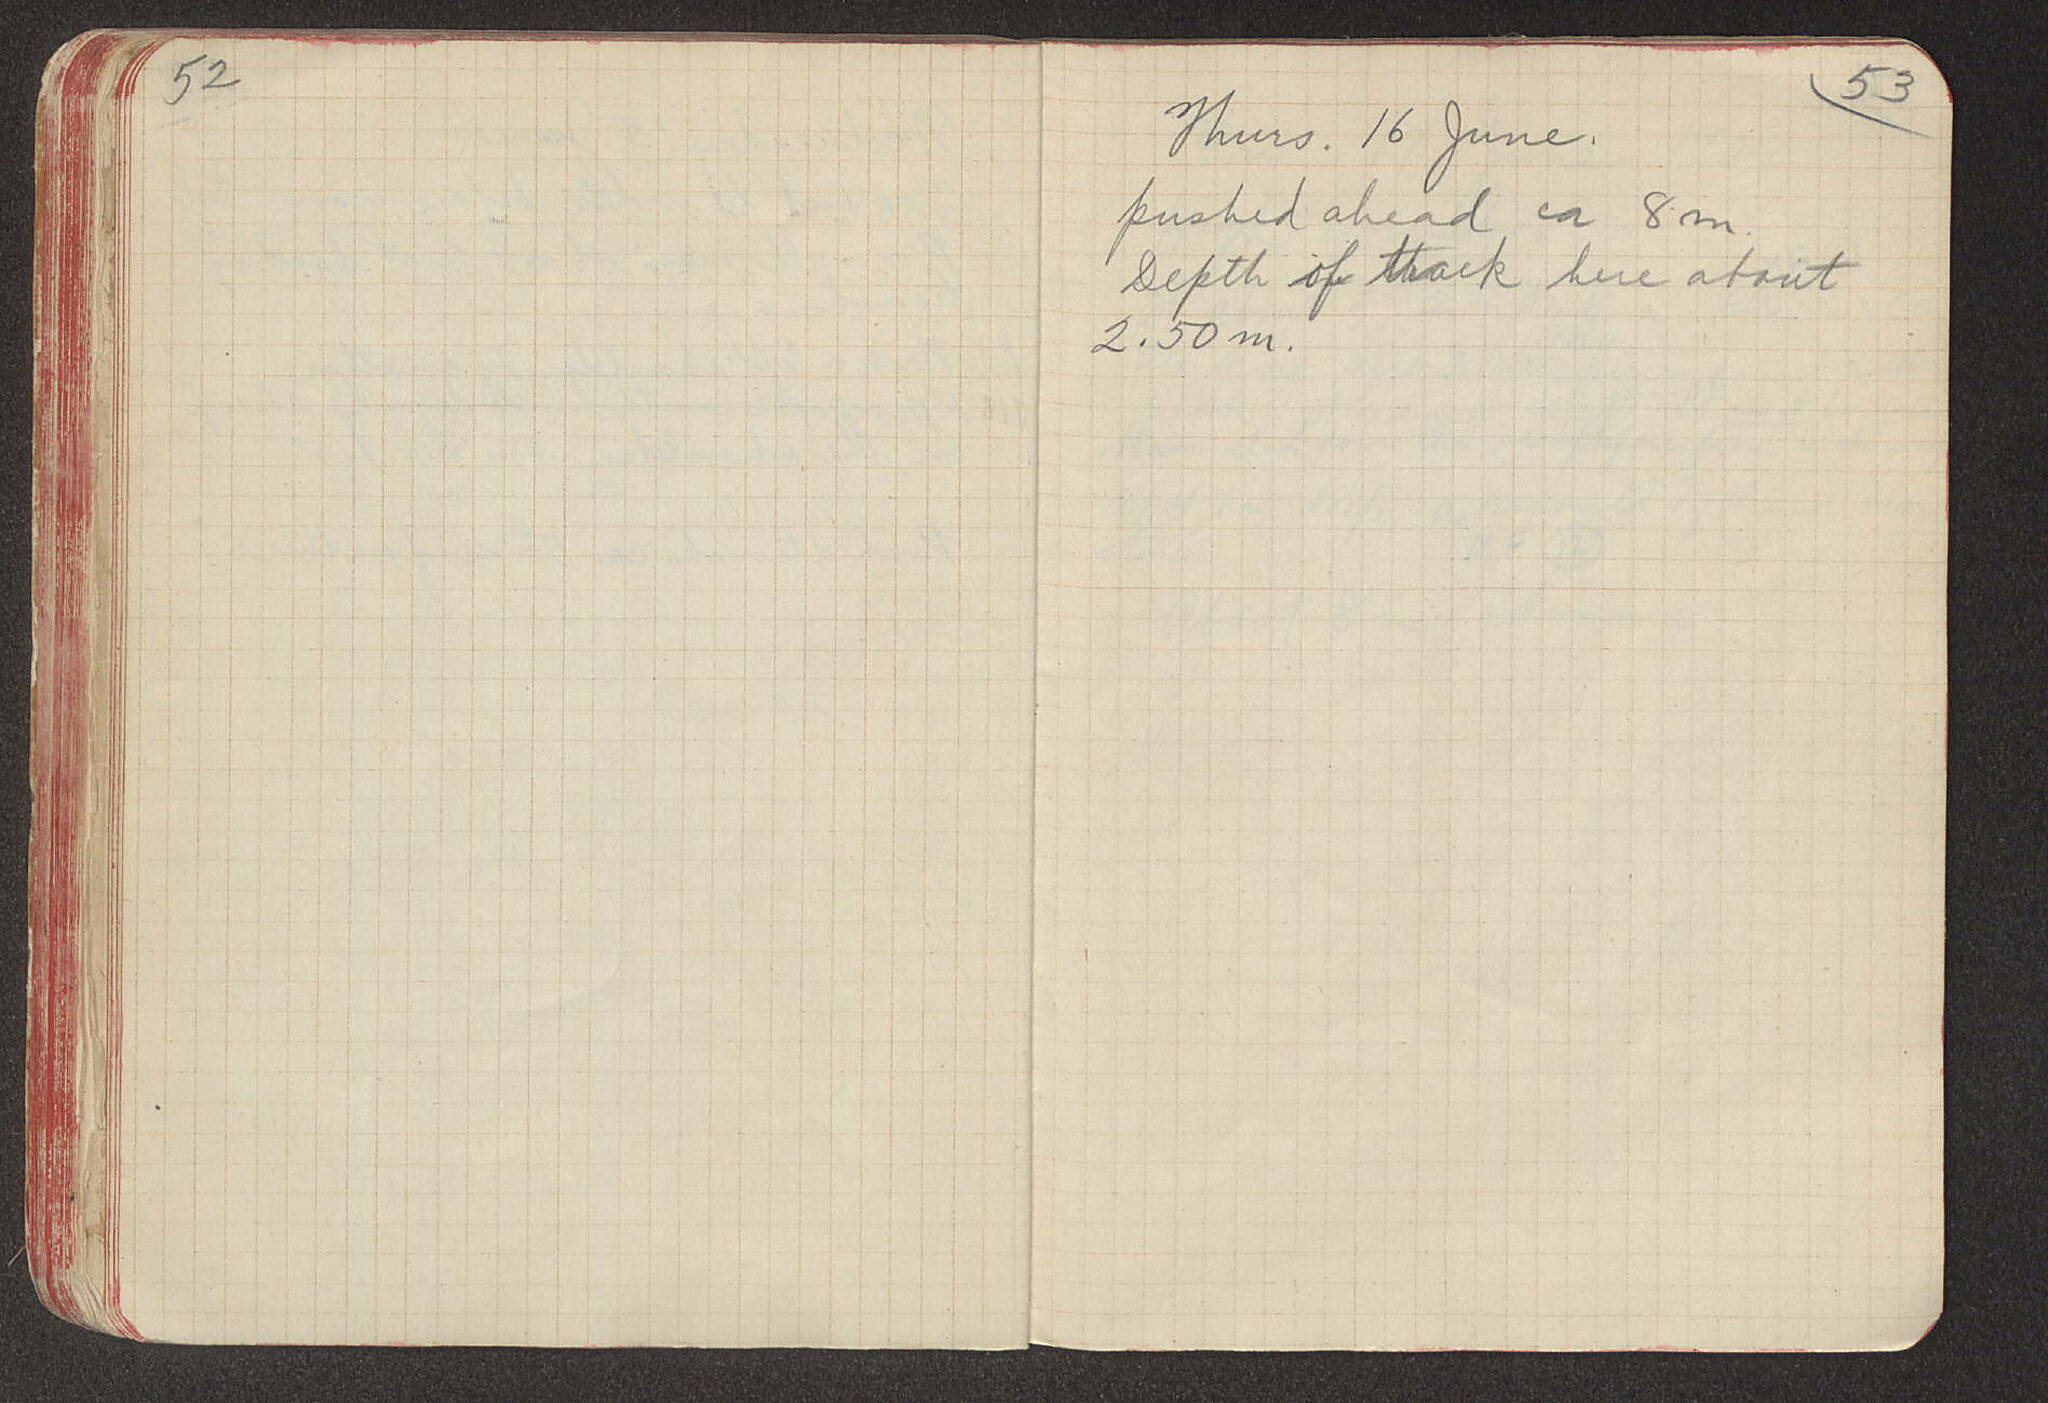 52
53
Thurs. 16 June.
pushed ahead ca 8 m.
Depth of track here about
2.50 m.